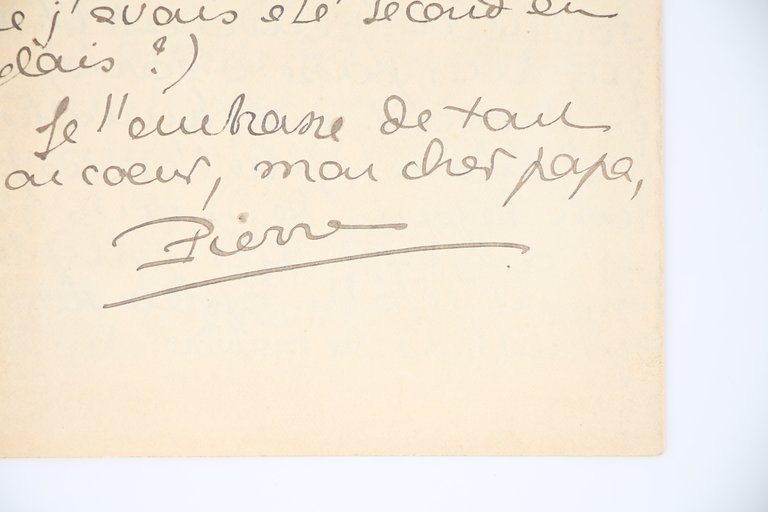 j'avais été second en
glais ?)
Je t'embrasse de tout
mon coeur, mon cher papa,
Pierre